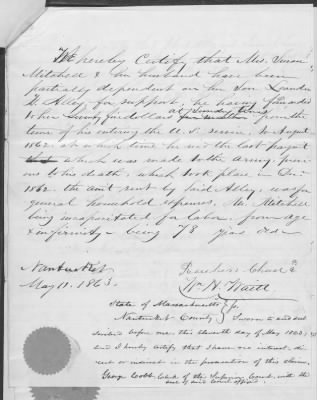 We hereby Certify that Mrs. Susan
Mitchell & her husband have been
partially dependent on her Son Leander
F. Alley, for support, he having furnished
to her Sixty five dollars at sundry times from the
time of his entering the U.S. service, to August
1862, at which time he rec'd the last payment
which was made to the army, previ
ous to his death, which took place in Dec.
1862. the am't sent by said Alley, was for
general household expenses, Mr Mitchell
being incapacitated for labor, from age
& infirmity - being 78 years old -
Nantucket
May 11. 1863.
Wm. H. Waitt
State of Massachusetts
Nantucket County
Sworn to and sub
scribed before me, this eleventh day of May 1863,
and I hereby certify, that I have no interest, di
rect or indirect in the prosecution of this claim,
George Cobb Clerk of the Superior Court, with the
seal of said Court affixed